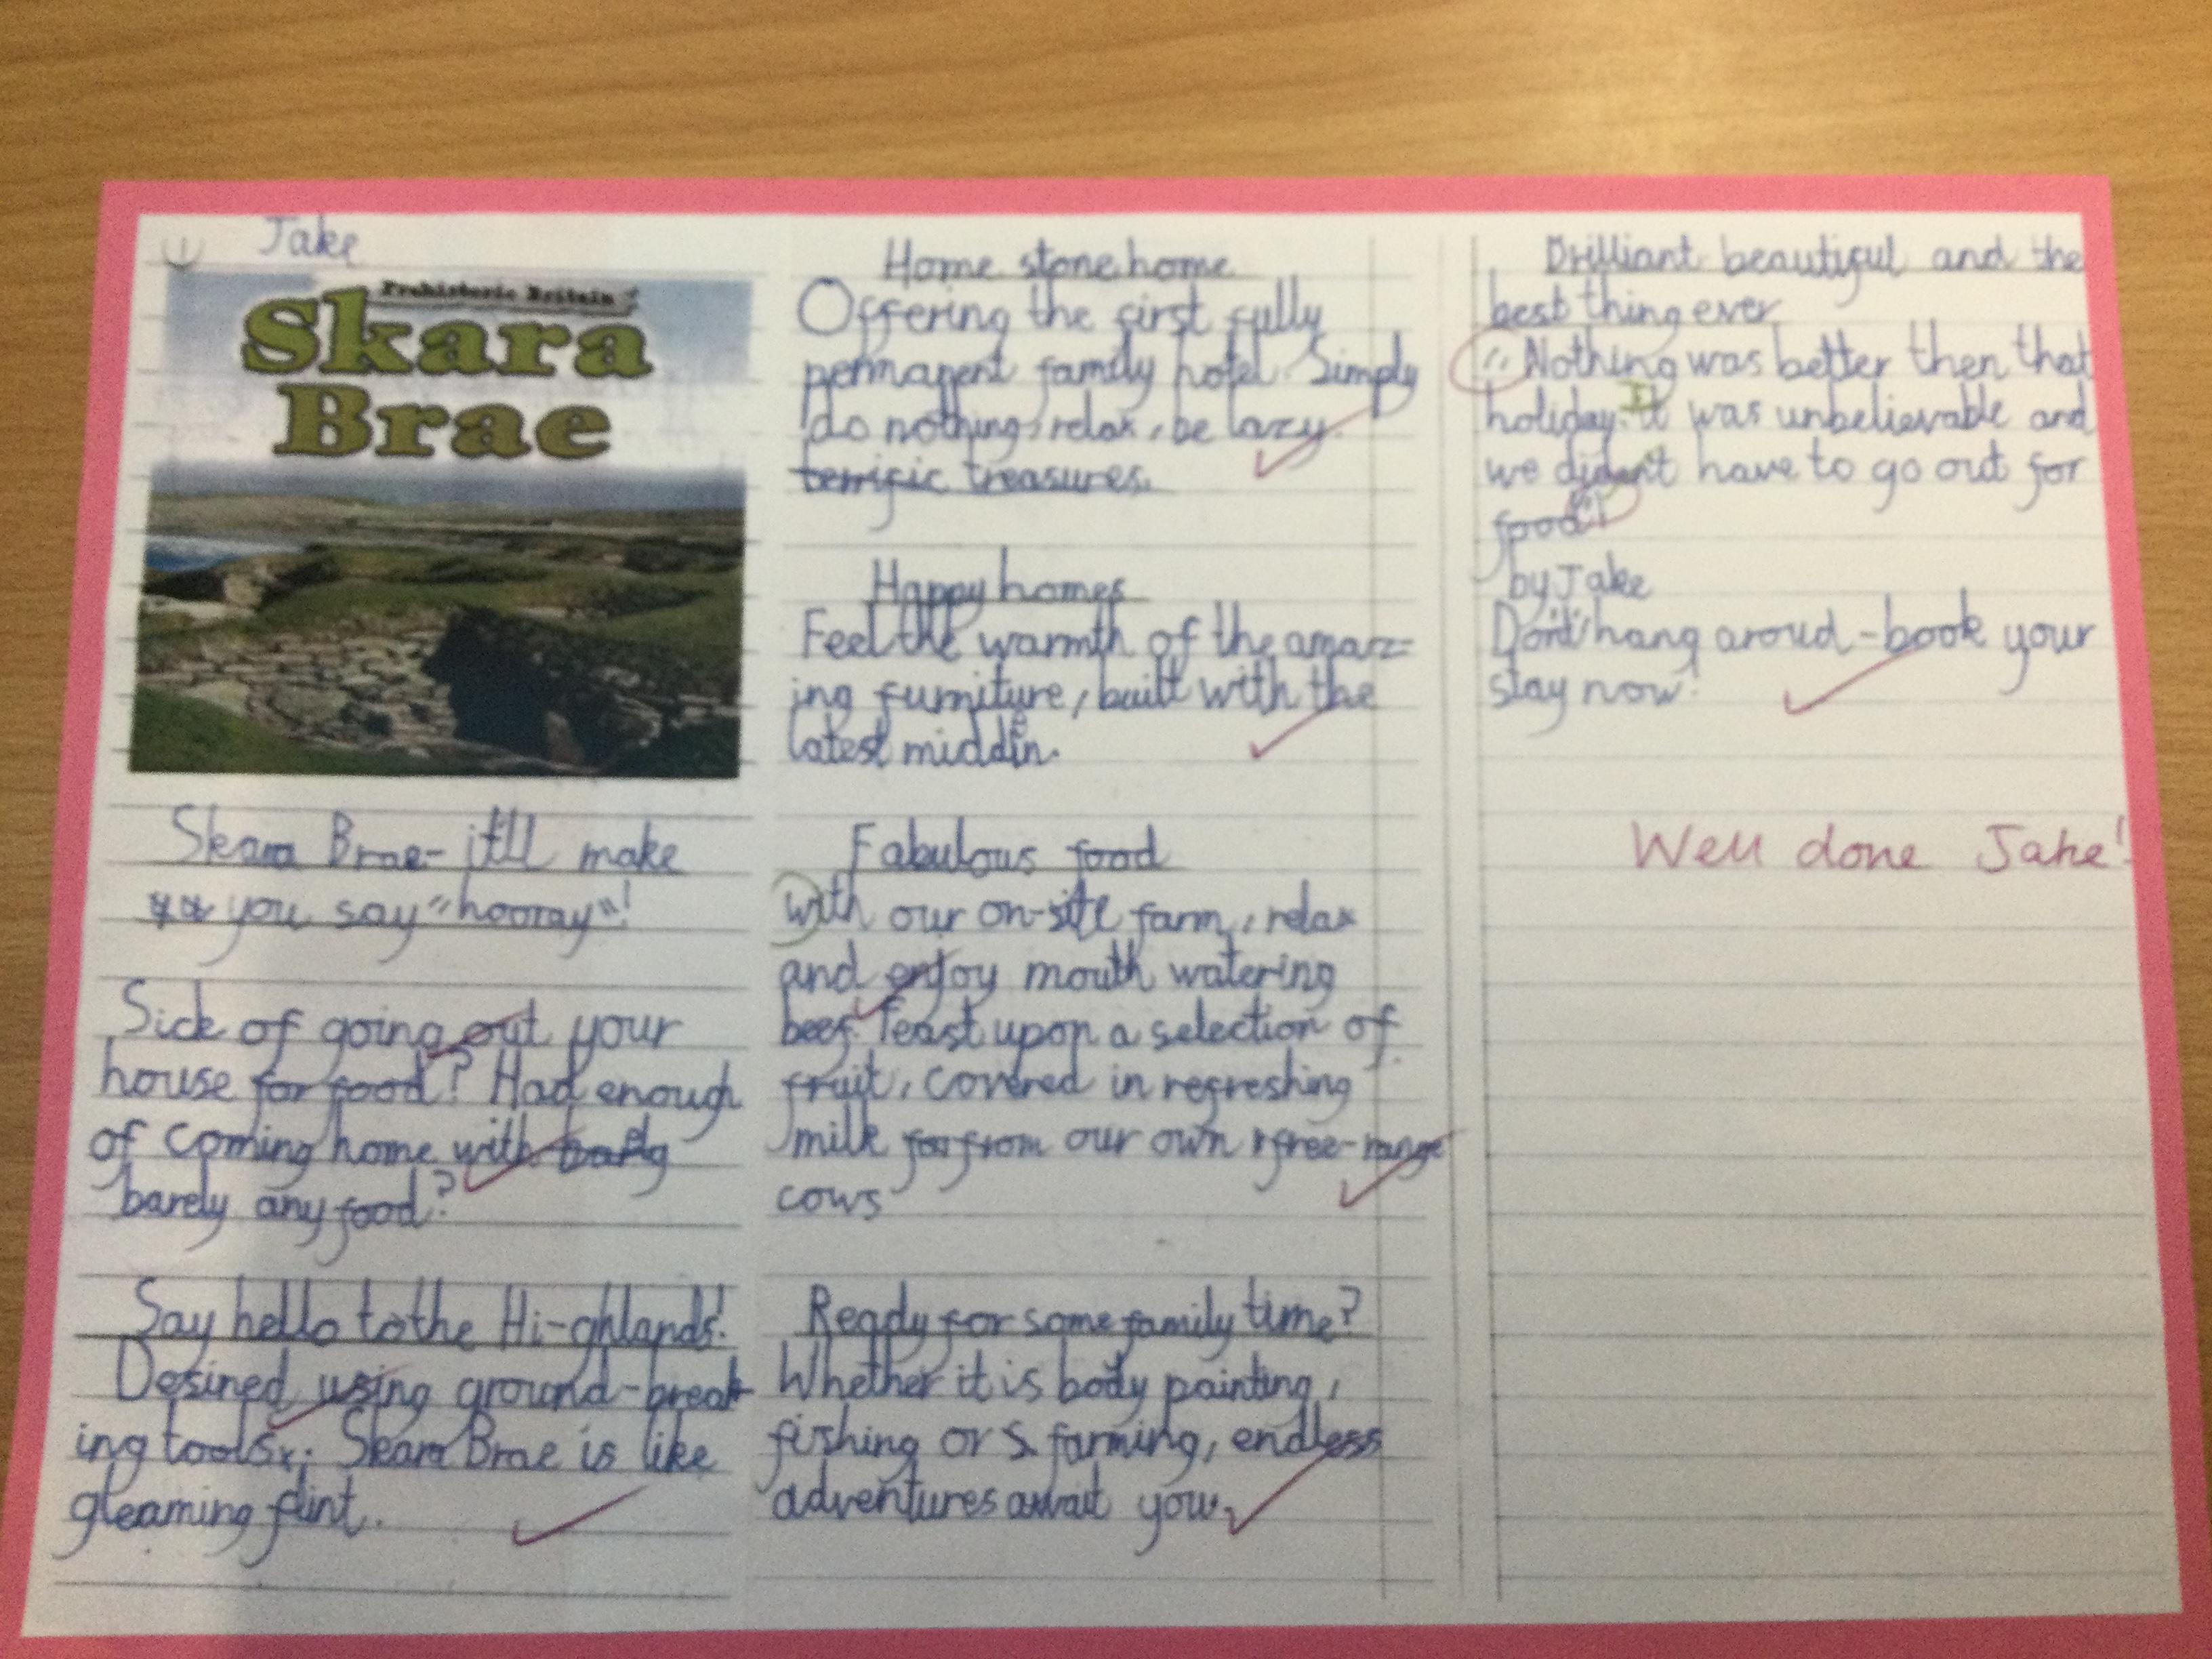 Jake
Prehistoric Britain
Skara
Brae
Skara Brae- it'll make
you say "hooray"!
Sick of going out your
house for food? Had enough
of coming home with
barely any food?
Say hello to the Hi-ghlands!
Desined using ground-break-
ing tools. Skara Brae is like
gleaming flint.
Home stone home
Offering the first fully
permanent family hotel. Simply
do nothing, relax, be lazy.
terrific treasures.
Happy homes
Feel the warmth of the amaz-
ing furniture, built with the
latest midden.
Fabulous food
with our on-site farm, relax
and enjoy mouth watering
beef. Feast upon a selection of
fruit, covered in refreshing
milk from our own free-range
cows
Ready for some family time?
Whether it is body painting,
fishing or farming, endless
adventures await you.
Brilliant beautiful and the
best thing ever
"Nothing was better then that
holiday. It was unbelievable and
we didn't have to go out for
food"!
by Jake
Don't hang aroud - book your
stay now!
Well done Jake!